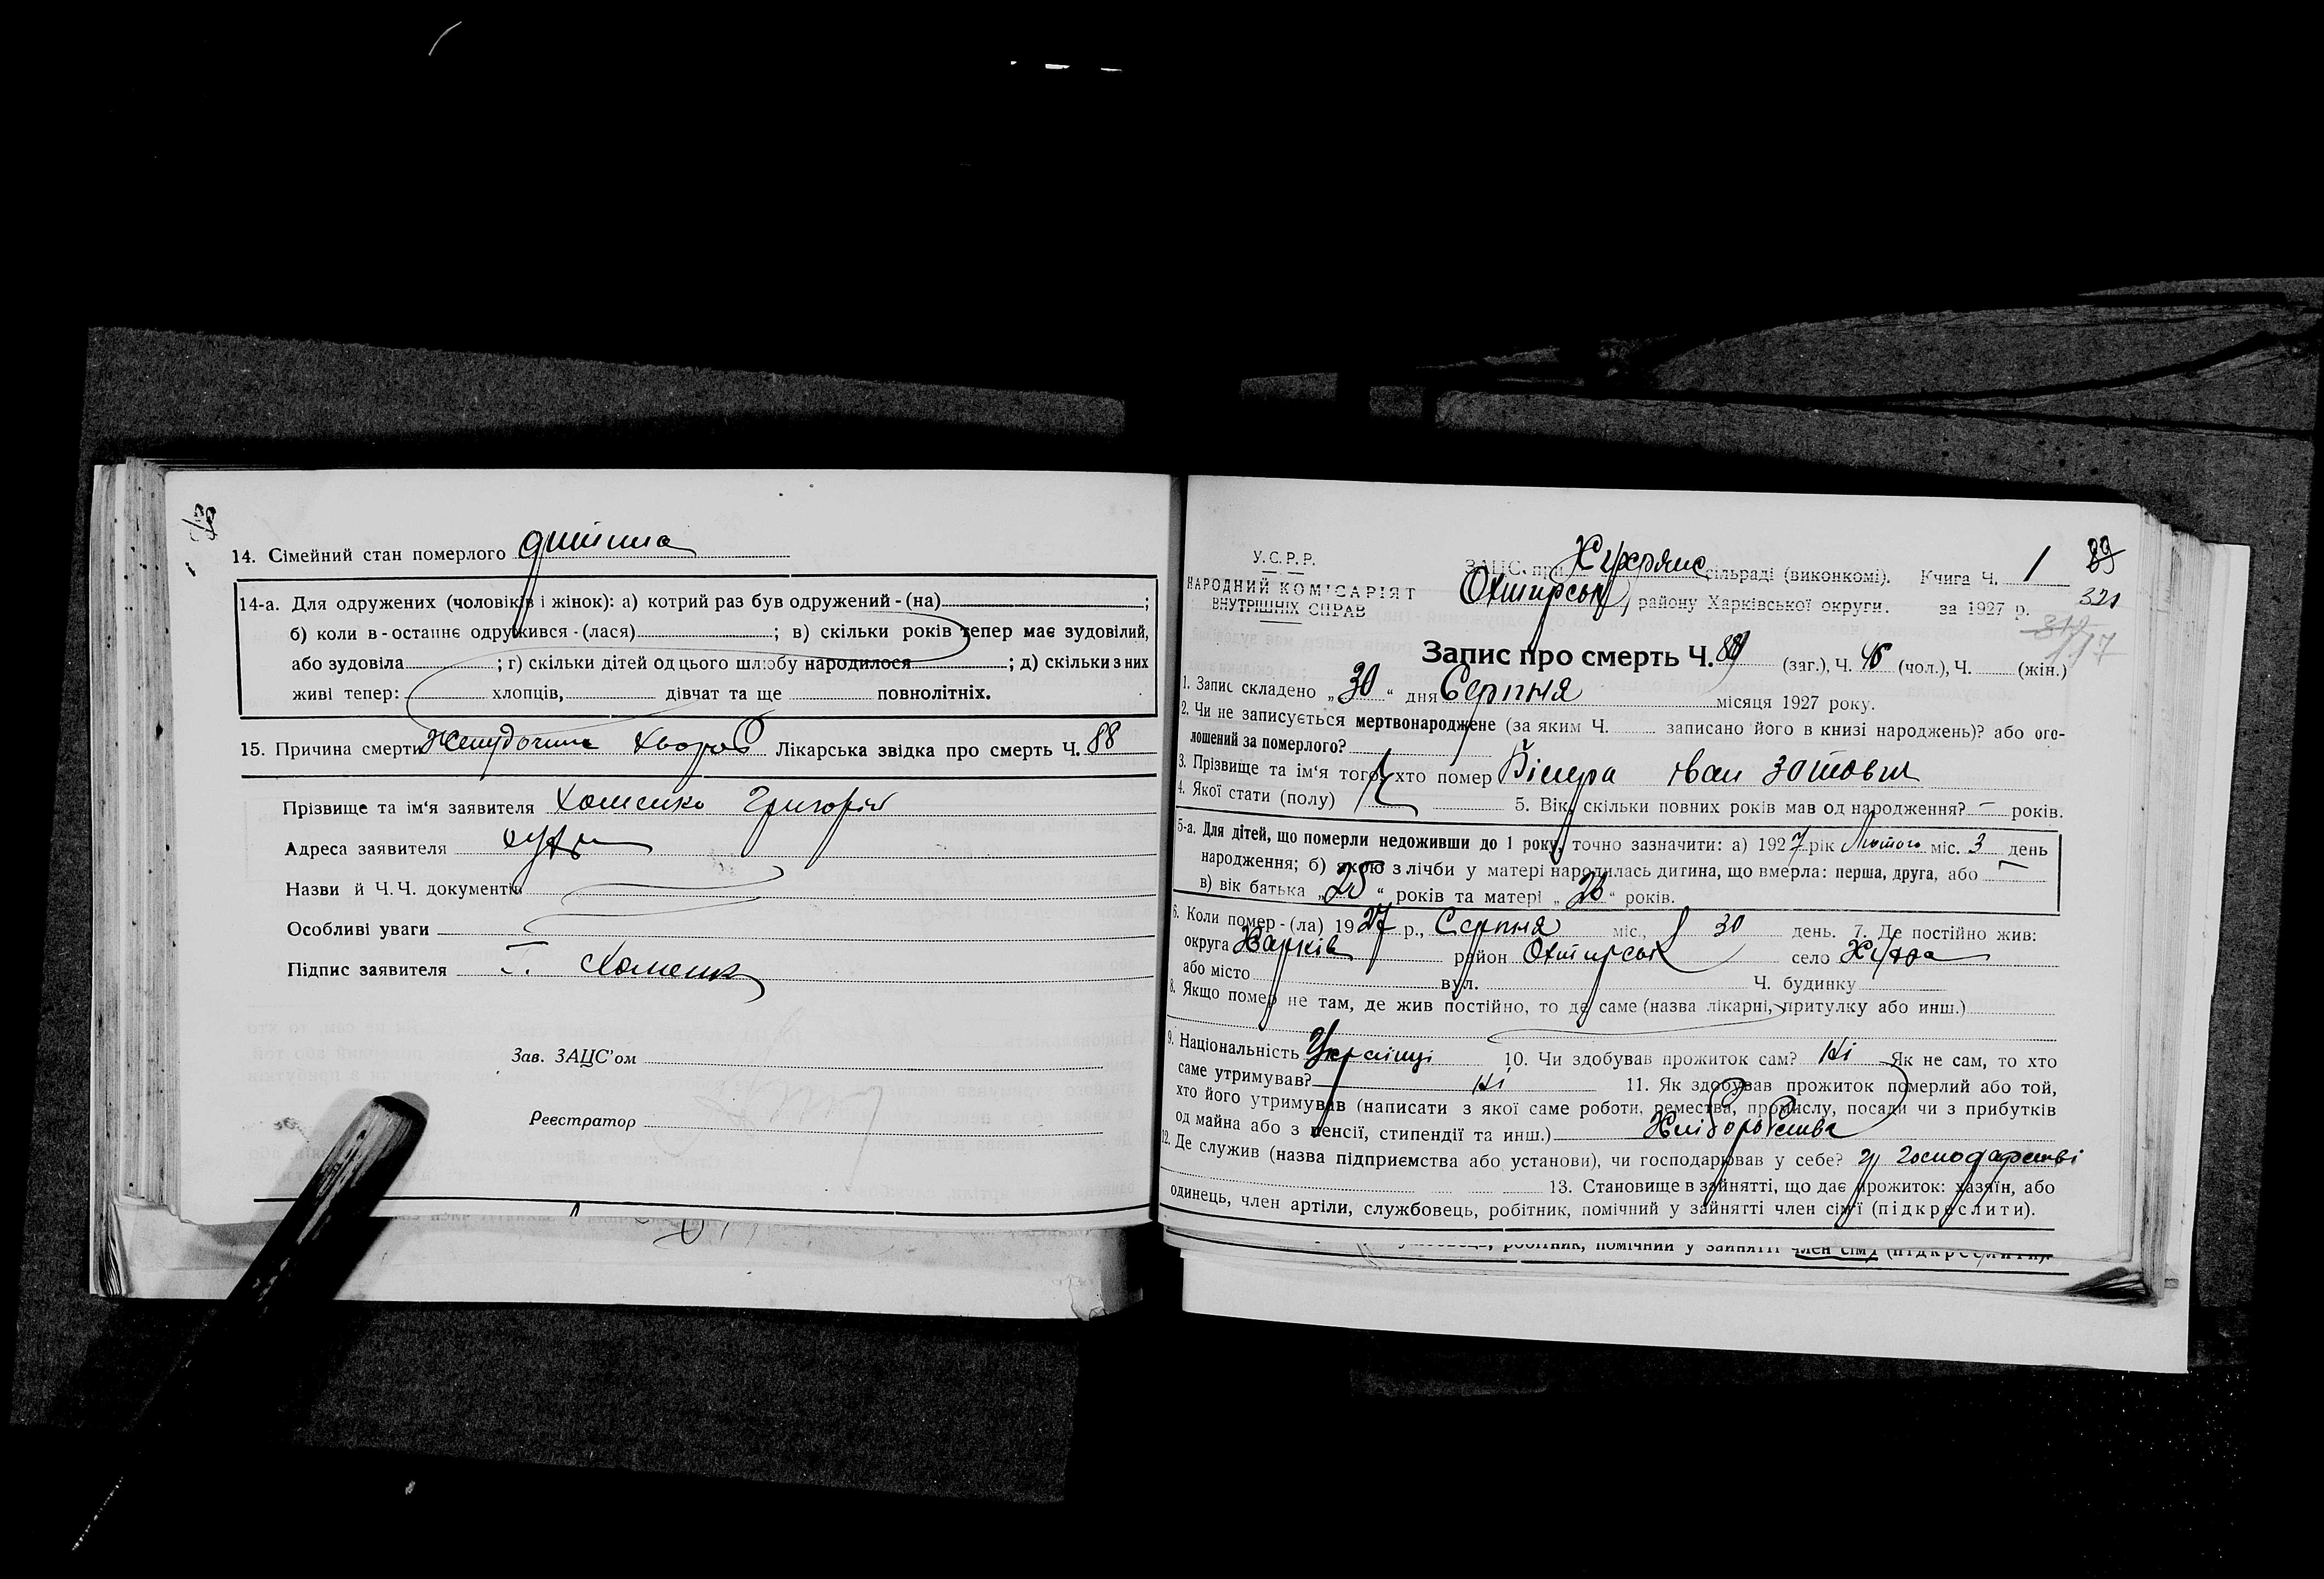 14. Сімейний стан померлого дитина
14-а. Для одружених (чоловіків і жінок): а) котрий раз був одружений - (на) ;
б) коли в-останнє одружився - (лася) ; в) скільки років тепер має зудовілий,
або зудовіла ; г) скільки дітей од цього шлюбу народилося ; д) скільки з них
живі тепер: хлопців, дівчат та ще повнолітніх.
15. Причина смерти Лікарська звідка про смерть Ч. 88
Прізвище та ім'я заявителя Хоменко Григорій
Адреса заявителя
Назви й Ч.Ч. документів
Особливі уваги
Підпис заявителя Г. Хоменко
Зав. ЗАЦС'ом
Реєстратор
У.С.Р.Р.
НАРОДНИЙ КОМІСАРІЯТ
ВНУТРІШНІХ СПРАВ
ЗАЦС. при сільраді (виконкомі). Книга Ч. 1
89
Охтирськ району Харківської округи. за 1927 р.
321
Запис про смерть Ч. 89 (заг.), Ч. 46 (чол.), Ч. (жін.)
1. Запис складено „30“ дня Серпня місяця 1927 року.
2. Чи не записується мертвонароджене (за яким Ч. записано його в книзі народжень)? або ого-
лошений за померлого?
3. Прізвище та ім'я того, хто помер Іван
4. Якої стати (полу) Ч 5. Вік, скільки повних років мав од народження? — років.
5-а. Для дітей, що померли недоживши до 1 року, точно зазначити: а) 1927 рік Лютого міс. 3 день
народження; б) якою з лічби у матері народилась дитина, що вмерла: перша, друга, або —
в) вік батька „25“ років та матері „26“ років.
6. Коли помер - (ла) 1927 р., Серпня міс., 30 день. 7. Де постійно жив:
округа Харків район Охтирськ село Хухра
або місто вул. Ч. будинку
8. Якщо помер не там, де жив постійно, то де саме (назва лікарні, притулку або инш.)
9. Національність Українці 10. Чи здобував прожиток сам? Ні Як не сам, то хто
саме утримував? Ні 11. Як здобував прожиток померлий або той,
хто його утримував (написати з якої саме роботи, ремества, промислу, посади чи з прибутків
од майна або з пенсії, стипендії та инш.) Хліборобства
12. Де служив (назва підприємства або установи), чи господарював у себе? у господарстві
13. Становище в зайнятті, що дає прожиток: хазяїн, або
одинець, член артіли, службовець, робітник, помічний у зайнятті член сім'ї (підкреслити).
робітник, помічний у зайнятті член сім'ї (підкреслити).